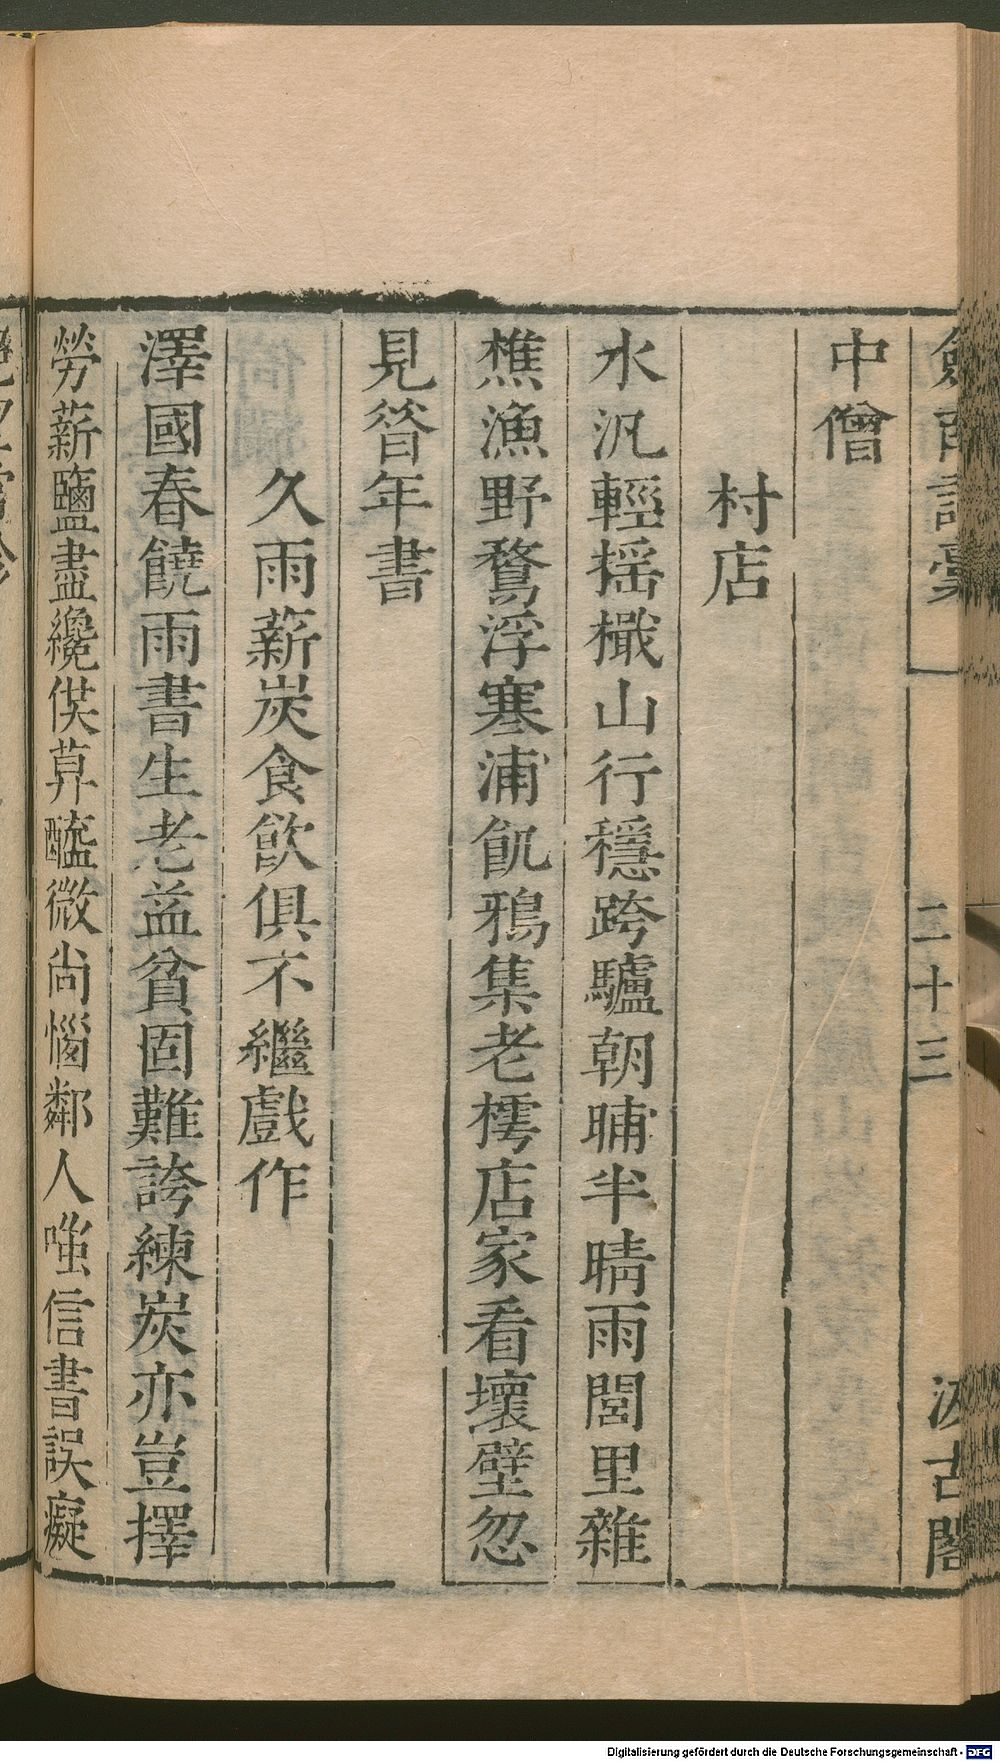 劍南詩稾
二十三
汲古閣
中僧
村店
水汎輕揺檝山行穩跨驢朝晡半晴雨閭里雜
樵漁野鶩浮寒浦飢鴉集老樗店家看壞壁忽
見昝年書
久雨薪炭食飲俱不繼戲作
澤國春饒雨書生老益貧固難誇練炭亦豈擇
勞薪鹽盡纔供葬醯微尚惱鄰人嗤信書誤癡
Digitalisierung gefördert durch die Deutsche Forschungsgemeinschaft - DFG